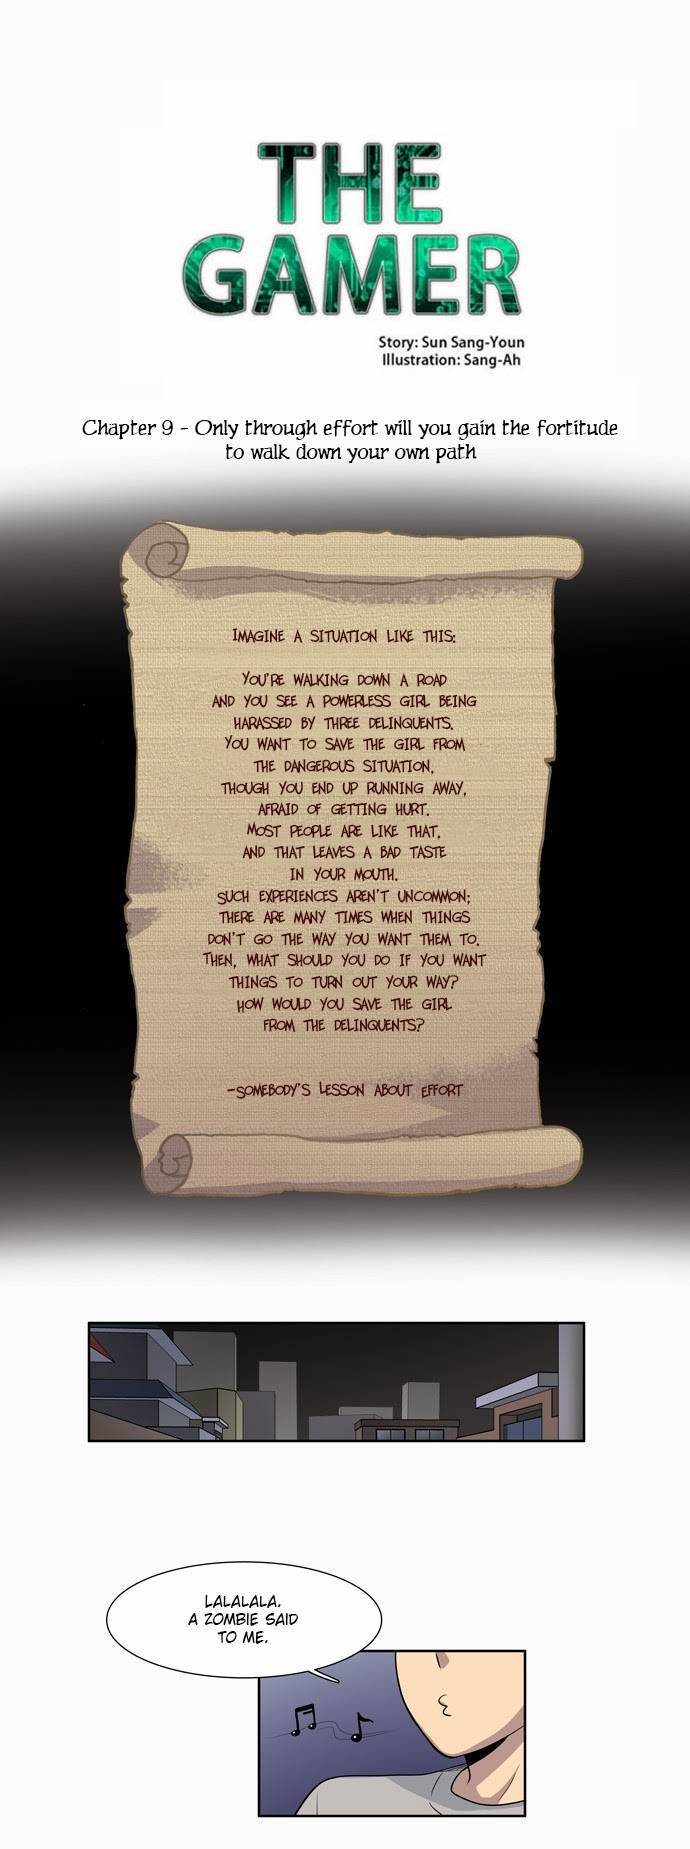 THE
GAMER
Story: Sun Sang-Youn
Illustration: Sang-Ah
Chapter 9 - Only through effort will you gain the fortitude
to walk down your own path
IMAGINE A SITUATION LIKE THIS:
YOU'RE WALKING DOWN A ROAD
AND YOU SEE A POWERLESS GIRL BEING
HARASSED BY THREE DELINQUENTS.
YOU WANT TO SAVE THE GIRL FROM
THE DANGEROUS SITUATION,
THOUGH YOU END UP RUNNING AWAY,
AFRAID OF GETTING HURT.
MOST PEOPLE ARE LIKE THAT,
AND THAT LEAVES A BAD TASTE
IN YOUR MOUTH.
SUCH EXPERIENCES AREN'T UNCOMMON;
THERE ARE MANY TIMES WHEN THINGS
DON'T GO THE WAY YOU WANT THEM TO.
THEN, WHAT SHOULD YOU DO IF YOU WANT
THINGS TO TURN OUT YOUR WAY?
HOW WOULD YOU SAVE THE GIRL
FROM THE DELINQUENTS?
-SOMEBODY'S LESSON ABOUT EFFORT
LALALALA.
A ZOMBIE SAID
TO ME.